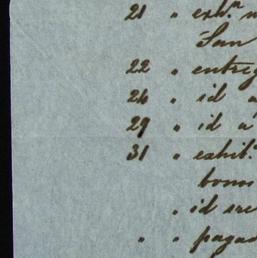 21 " exh.n
San
22 " entreg
24 " id a
29 " id a
31 " exhib.
bono
" id
" " pagad